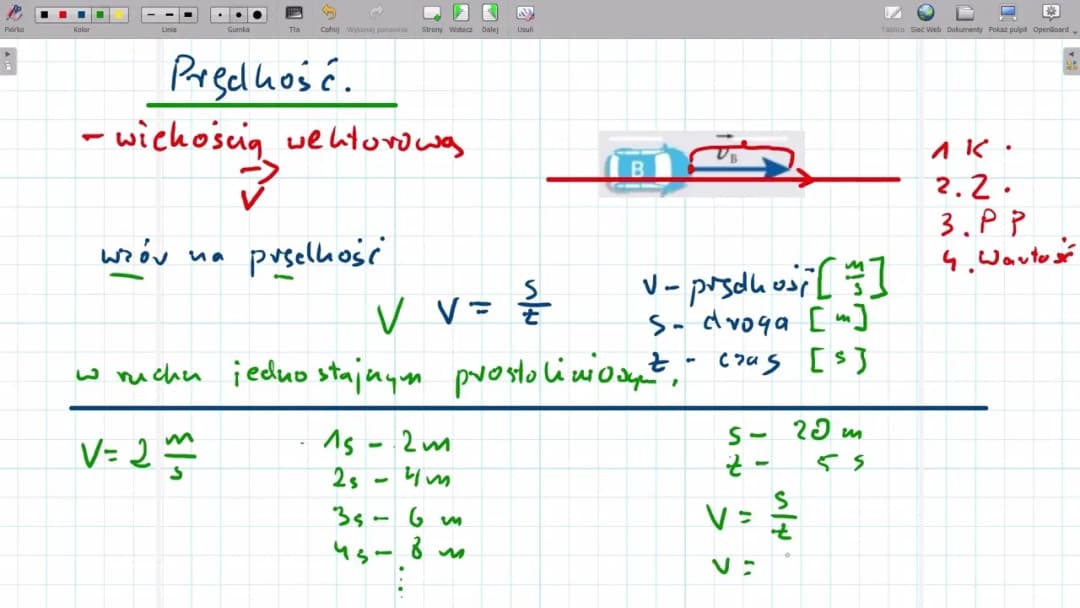 Piórko Kolor Linia Gumka Tła Cofnij Wykonaj ponownie Strony Wstecz Dalej Usuń Tablica Sieć Web Dokumenty Pokaż pulpit OpenBoard
Prędkość.
- wielkością wektorową
V
B
v B
1 K .
2. Z .
3. P P
4. Wartość
wzór na prędkość
V V = s/t
v - prędkość [m/s]
s - droga [m]
t - czas [s]
w ruchu jednostajnym prostoliniowym.
V = 2 m/s
1s - 2m
2s - 4m
3s - 6 m
4s - 8 m
s - 20 m
t - 5 s
V = s/t
V =